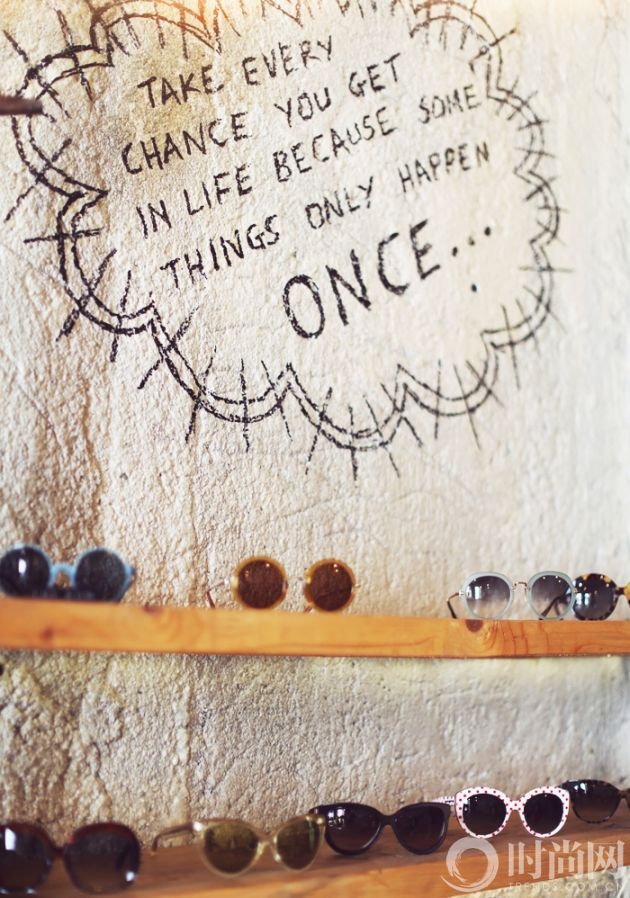 TAKE EVERY
CHANCE YOU GET
IN LIFE BECAUSE SOME
THINGS ONLY HAPPEN
ONCE...
时尚网
TRENDS.COM.CN